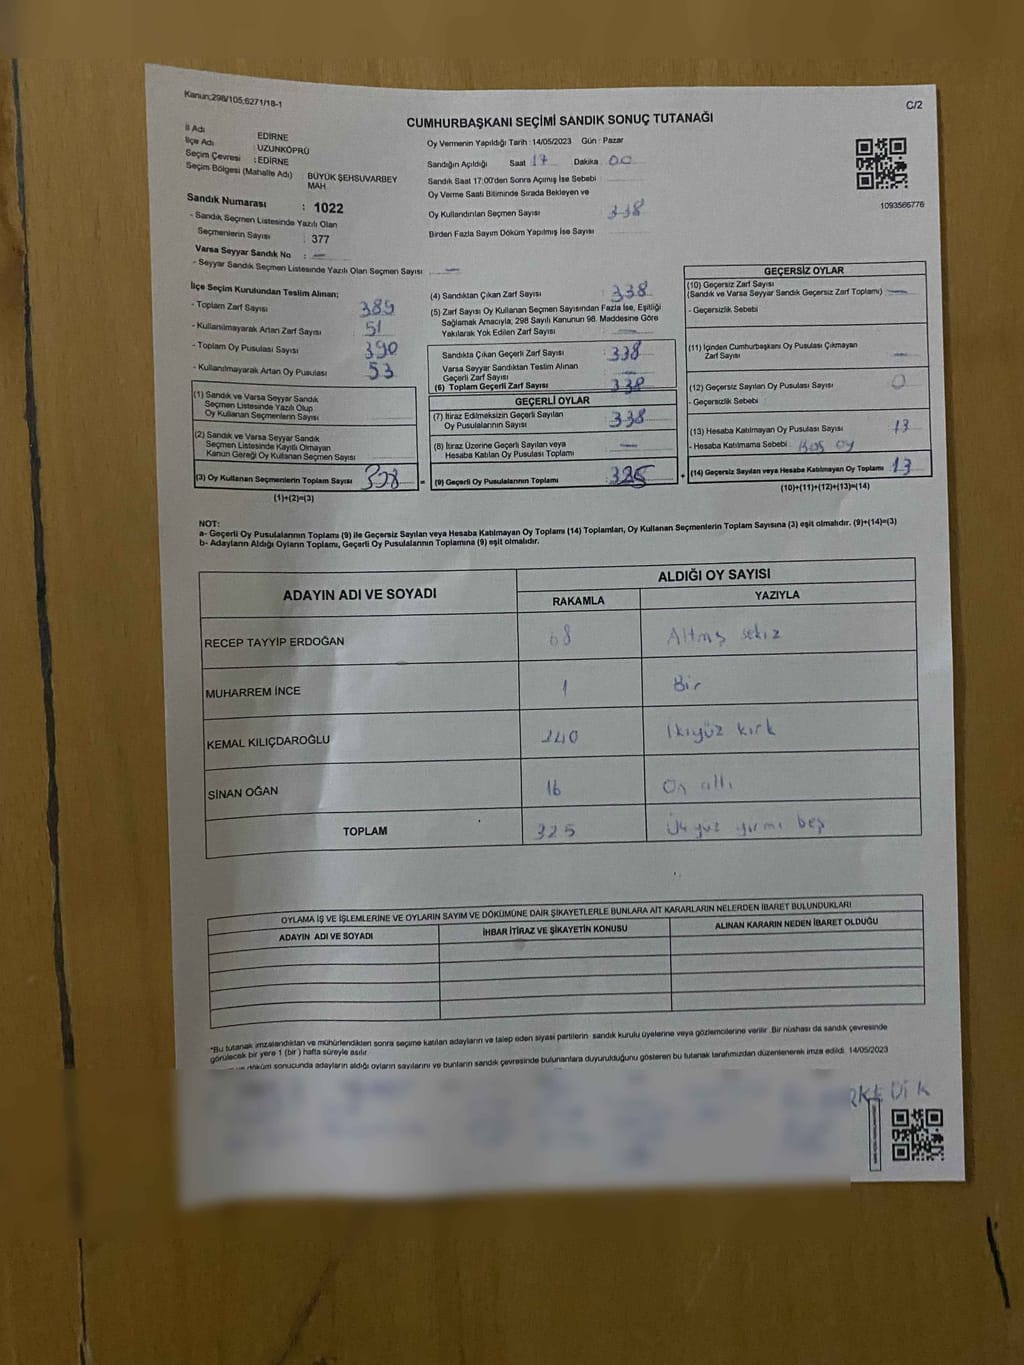 Kanun;298/105;6271/18-1
C/2
CUMHURBAŞKANI SEÇİMİ SANDIK SONUÇ TUTANAĞI
İl Adı EDİRNE
İlçe Adı : UZUNKÖPRÜ
Seçim Çevresi : EDİRNE
Seçim Bölgesi (Mahalle Adı) : BÜYÜK ŞEHSUVARBEY
MAH.
Sandık Numarası : 1022
- Sandık Seçmen Listesinde Yazılı Olan
Seçmenlerin Sayısı : 377
Varsa Seyyar Sandık No : —
- Seyyar Sandık Seçmen Listesinde Yazılı Olan Seçmen Sayısı : —
Oy Vermenin Yapıldığı Tarih : 14/05/2023 Gün : Pazar
Sandığın Açıldığı Saat 17 Dakika 00
Sandık Saat 17:00'den Sonra Açılmış İse Sebebi
Oy Verme Saati Bitiminde Sırada Bekleyen ve
Oy Kullandırılan Seçmen Sayısı 338
Birden Fazla Sayım Döküm Yapılmış İse Sayısı
1093566776
İlçe Seçim Kurulundan Teslim Alınan;
- Toplam Zarf Sayısı 389
- Kullanılmayarak Artan Zarf Sayısı 51
- Toplam Oy Pusulası Sayısı 390
- Kullanılmayarak Artan Oy Pusulası 53
(1) Sandık ve Varsa Seyyar Sandık
Seçmen Listesinde Yazılı Olup
Oy Kullanan Seçmenlerin Sayısı
(2) Sandık ve Varsa Seyyar Sandık
Seçmen Listesinde Kayıtlı Olmayan
Kanun Gereği Oy Kullanan Seçmen Sayısı
(3) Oy Kullanan Seçmenlerin Toplam Sayısı 338 =
(1)+(2)=(3)
(4) Sandıktan Çıkan Zarf Sayısı : 338
(5) Zarf Sayısı Oy Kullanan Seçmen Sayısından Fazla İse, Eşitliği
Sağlamak Amacıyla, 298 Sayılı Kanunun 98. Maddesine Göre
Yakılarak Yok Edilen Zarf Sayısı : —
Sandıkta Çıkan Geçerli Zarf Sayısı : 338
Varsa Seyyar Sandıktan Teslim Alınan
Geçerli Zarf Sayısı
(6) Toplam Geçerli Zarf Sayısı : 338
GEÇERLİ OYLAR
(7) İtiraz Edilmeksizin Geçerli Sayılan
Oy Pusulalarının Sayısı : 338
(8) İtiraz Üzerine Geçerli Sayılan veya
Hesaba Katılan Oy Pusulası Toplamı : —
(9) Geçerli Oy Pusulalarının Toplamı : 325 +
GEÇERSİZ OYLAR
(10) Geçersiz Zarf Sayısı
(Sandık ve Varsa Seyyar Sandık Geçersiz Zarf Toplamı) : —
- Geçersizlik Sebebi
(11) İçinden Cumhurbaşkanı Oy Pusulası Çıkmayan
Zarf Sayısı : —
(12) Geçersiz Sayılan Oy Pusulası Sayısı : 0
- Geçersizlik Sebebi
(13) Hesaba Katılmayan Oy Pusulası Sayısı : 13
- Hesaba Katılmama Sebebi : Boş oy
(14) Geçersiz Sayılan veya Hesaba Katılmayan Oy Toplamı : 13
(10)+(11)+(12)+(13)=(14)
NOT:
a- Geçerli Oy Pusulalarının Toplamı (9) ile Geçersiz Sayılan veya Hesaba Katılmayan Oy Toplamı (14) Toplamları, Oy Kullanan Seçmenlerin Toplam Sayısına (3) eşit olmalıdır. (9)+(14)=(3)
b- Adayların Aldığı Oyların Toplamı, Geçerli Oy Pusulalarının Toplamına (9) eşit olmalıdır.
ADAYIN ADI VE SOYADI
ALDIĞI OY SAYISI
RAKAMLA YAZIYLA
RECEP TAYYİP ERDOĞAN 68 Altmış sekiz
MUHARREM İNCE 1 Bir
KEMAL KILIÇDAROĞLU 240 İkiyüz kırk
SİNAN OĞAN 16 On altı
TOPLAM 325 Üçyüz yirmi beş
OYLAMA İŞ VE İŞLEMLERİNE VE OYLARIN SAYIM VE DÖKÜMÜNE DAİR ŞİKAYETLERLE BUNLARA AİT KARARLARIN NELERDEN İBARET BULUNDUKLARI
ADAYIN ADI VE SOYADI İHBAR İTİRAZ VE ŞİKAYETİN KONUSU ALINAN KARARIN NEDEN İBARET OLDUĞU
*Bu tutanak imzalandıktan ve mühürlendikten sonra seçime katılan adayların ve talep eden siyasi partilerin sandık kurulu üyelerine veya gözlemcilerine verilir. Bir nüshası da sandık çevresinde
görülecek bir yere 1 (bir) hafta süreyle asılır.
döküm sonucunda adayların aldığı oyların sayılarını ve bunların sandık çevresinde bulunanlara duyurulduğunu gösteren bu tutanak tarafımızdan düzenlenerek imza edildi. 14/05/2023